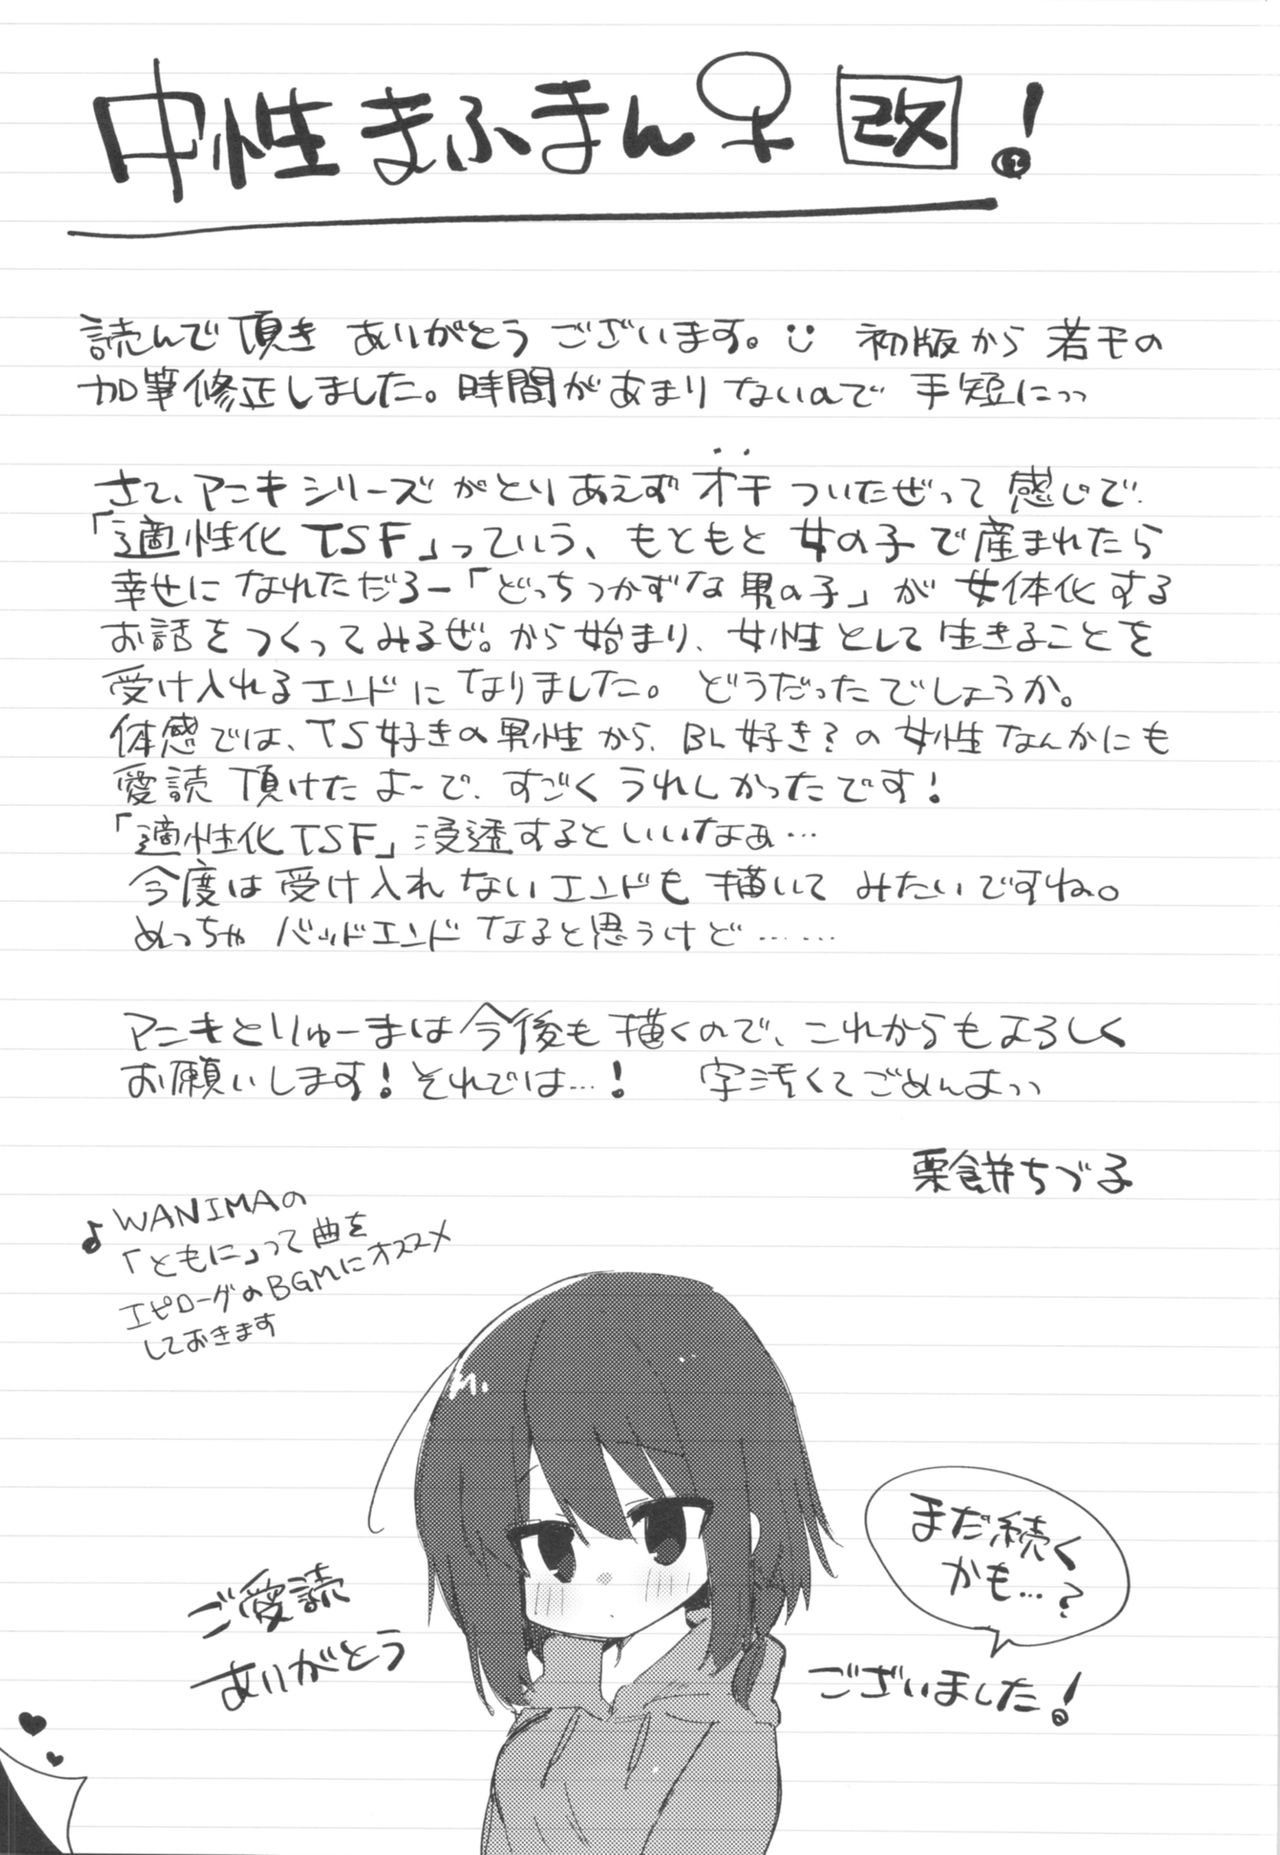 中性まふまん♀ 改！
読んで頂きありがとうございます。初版から若干の
加筆修正しました。時間があまりないので手短にっっ
さて、アニキシリーズがとりあえずオチついたぜって感じで
「適性化TSF」っていう、もともと女の子で産まれたら
幸せになれただろー「どっちつかずな男の子」が女体化する
お話をつくってみるぜ。から始まり、女性として生きることを
受け入れるエンドになりました。どうだったでしょうか。
体感では、TS好きの男性から、BL好き？の女性なんかにも
愛読頂けたよーで、すごくうれしかったです！
「適性化TSF」浸透するといいなぁ…
今度は受け入れないエンドも描いてみたいですね。
めっちゃバッドエンドなると思うけど……
アニキとりゅーまは今後も描くので、これからもよろしく
お願いします！それでは…！ 字汚くてごめんよっっ
栗餅ちづ子
♪WANIMAの
「ともに」って曲を
エピローグのBGMにオススメ
しておきます
まだ続く
かも…？
ご愛読
ありがとう
ございました！